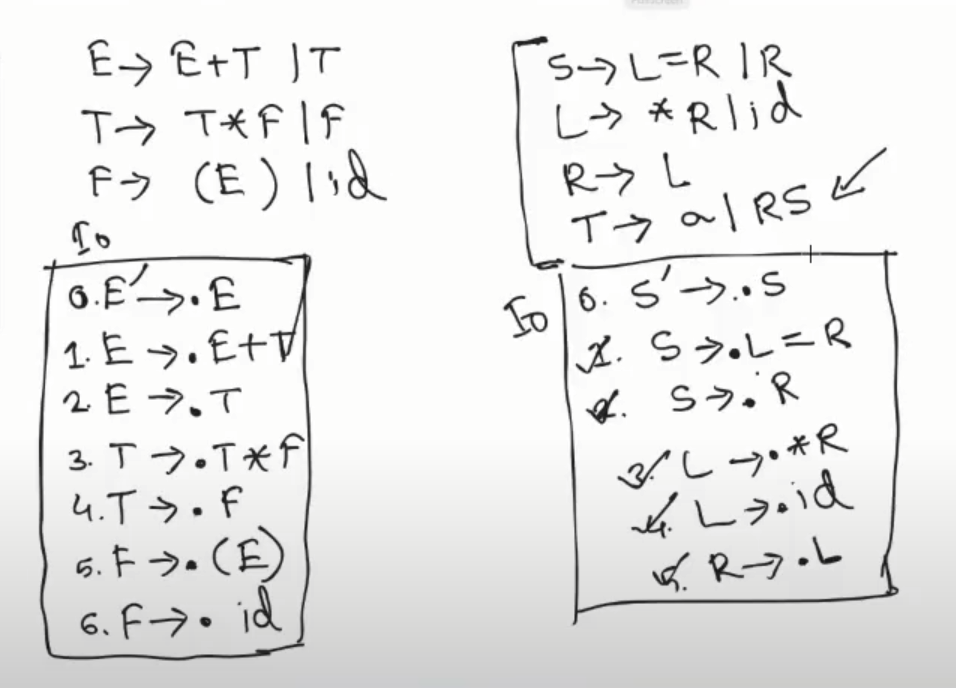 E → E+T | T
T → T*F | F
F → (E) | id
I0
0. E' → .E
1. E → .E+T
2. E → .T
3. T → .T*F
4. T → .F
5. F → .(E)
6. F → . id
S → L=R | R
L → *R | id
R → L
T → a | RS
I0
0. S' → .S
1. S → .L=R
2. S → .R
3. L → .*R
4. L → .id
5. R → .L